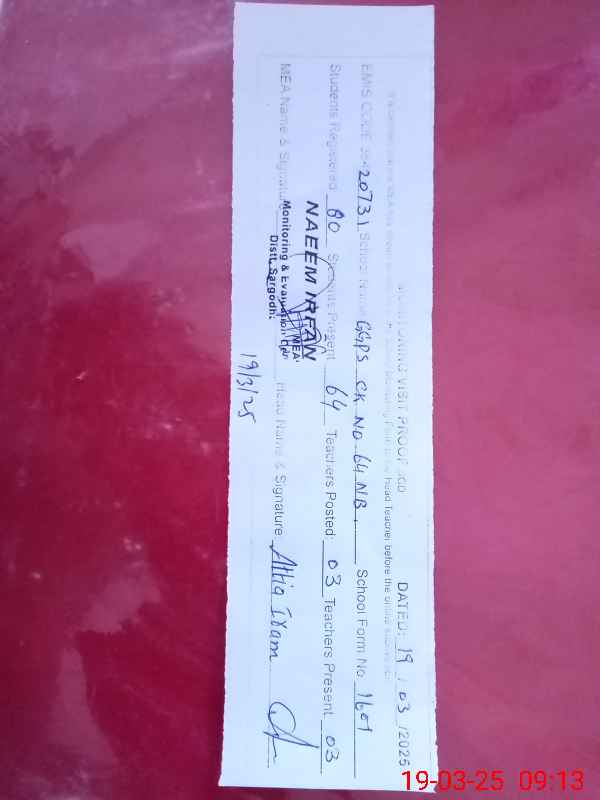 MONITORING VISIT PROOF DATED: 19 / 03 /2025
Head Teacher before the
EMIS CODE 38420731 School Name GGPS CK NO 64 NB. School Form No 1601
Students Registered 80 Students Present 64 Teachers Posted: 03 Teachers Present 03
MEA Name & Signature Head Name & Signature Attia Iram
NAEEM IRFAN
MEA
Monitoring & Evaluation
Distt. Sargodha
19/3/25
19-03-25 09:13